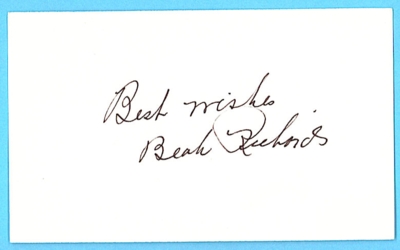 Best wishes
Beah Richards